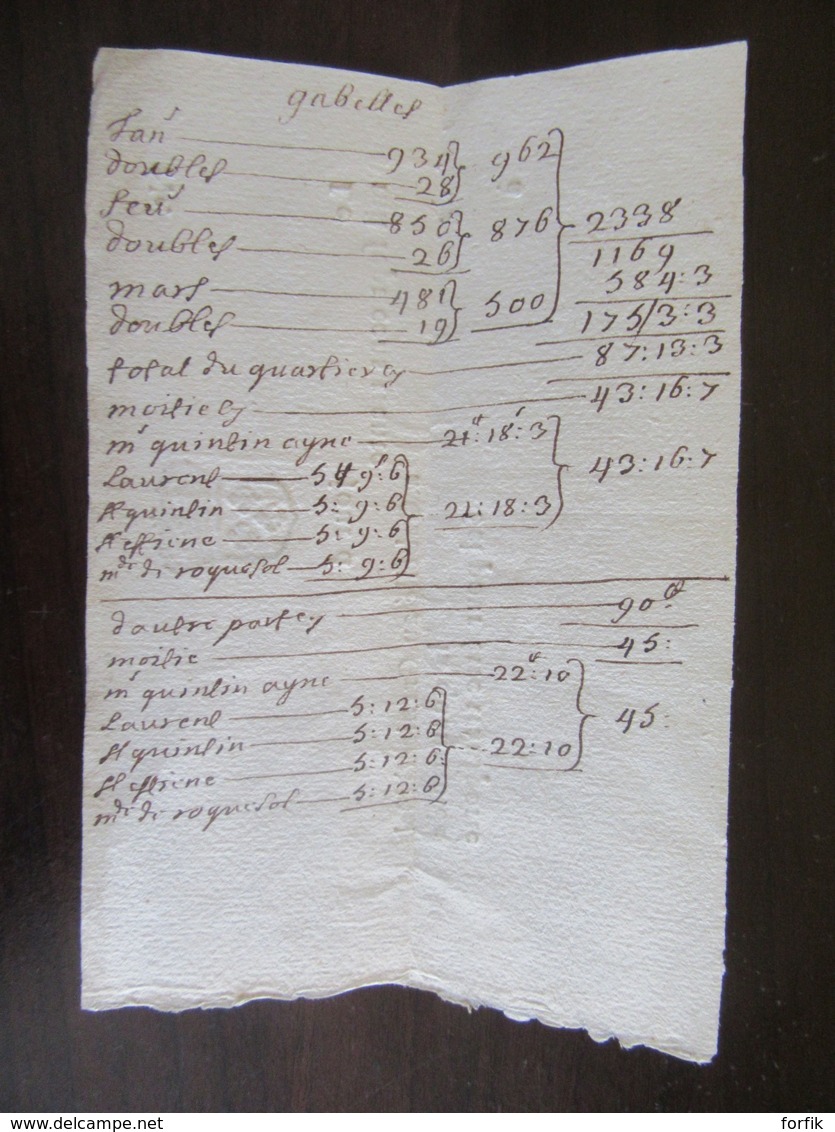 gabelles
Janr 934 962
doubles 28
feur 850 876 2338
doubles 26 1169
mars 481 500 584:3
doubles 19 175/3:3
total du quartier 87:13:3
moitie 43:16:7
mr quintin ayne 21:18:3 43:16:7
Laurent 5 9:6
st quintin 5: 9:6 21:18:3
st estiene 5: 9:6
mde de roquefol 5: 9:6
dautre partes 90
moitie 45:
mr quintin ayne 22:10
Laurent 5:12:6 45:
st quintin 5:12:6
st estiene 5:12:6 22:10
mde de roquefol 5:12:6
www.delcampe.net
forfik